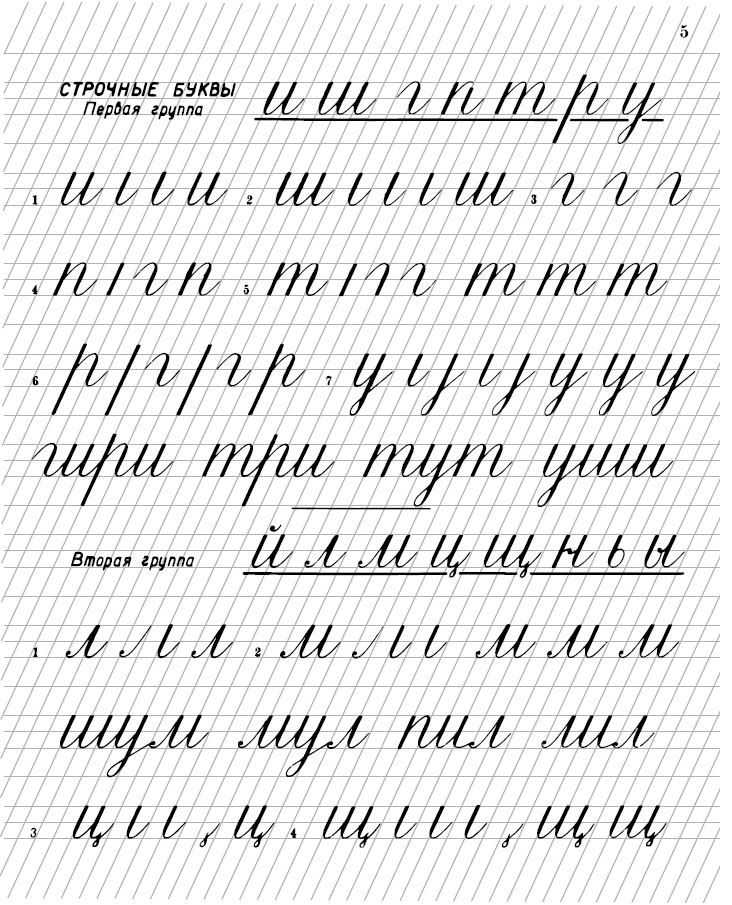 5
СТРОЧНЫЕ БУКВЫ и ш г п т р у
Первая группа
1 и и 2 ш ш 3 г г г
4 п г п 5 т г т т т
6 р г г р 7 у у у у у
шри три тут уши
Вторая группа й л м ц щ н ь ы
1 л л л 2 м л м м м
шум мул пил лил
3 ц ц 4 щ щ щ